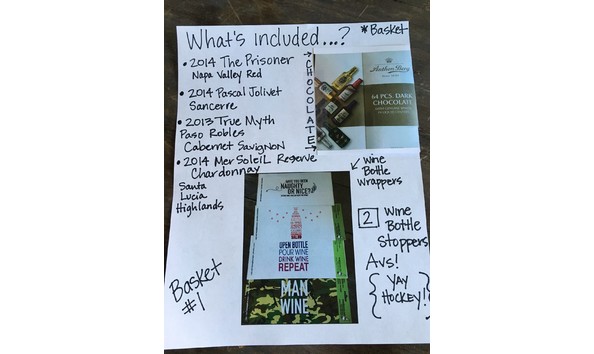 What's included...?
*Basket
• 2014 The Prisoner
Napa Valley Red
• 2014 Pascal Jolivet
Sancerre
• 2013 True Myth
Paso Robles
Cabernet Savignon
• 2014 Mer Soleil Reserve
Chardonnay
Santa
Lucia
Highlands
CHOCOLATE
Anthon Berg
64 PCS. DARK
CHOCOLATE
Wine
Bottle
Wrappers
NAUGHTY
OR NICE?
OPEN BOTTLE
POUR WINE
DRINK WINE
REPEAT
MAN
WINE
2 Wine
Bottle
Stoppers
Avs!
{YAY
HOCKEY!}
Basket
#1